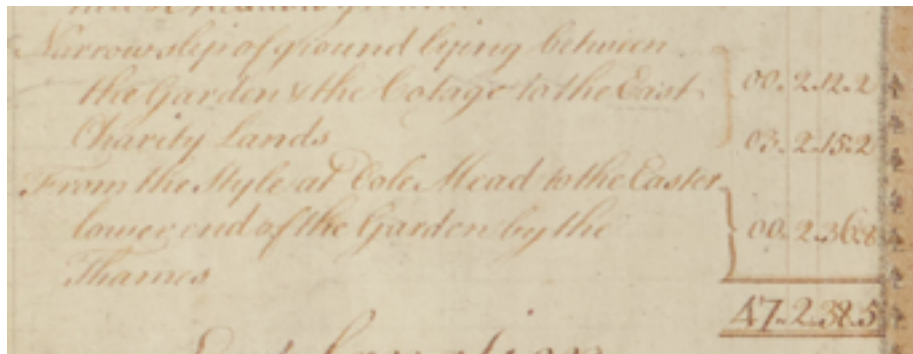 Narrow slip of ground lying between
the Garden & the Cotage to the East 00. 2.12.2
Charity Lands 03. 2.15.2
From the Style at Cole Mead to the Easter
lower end of the Garden by the 00. 2.36.8
Thames
47. 2.38.5
Explanation